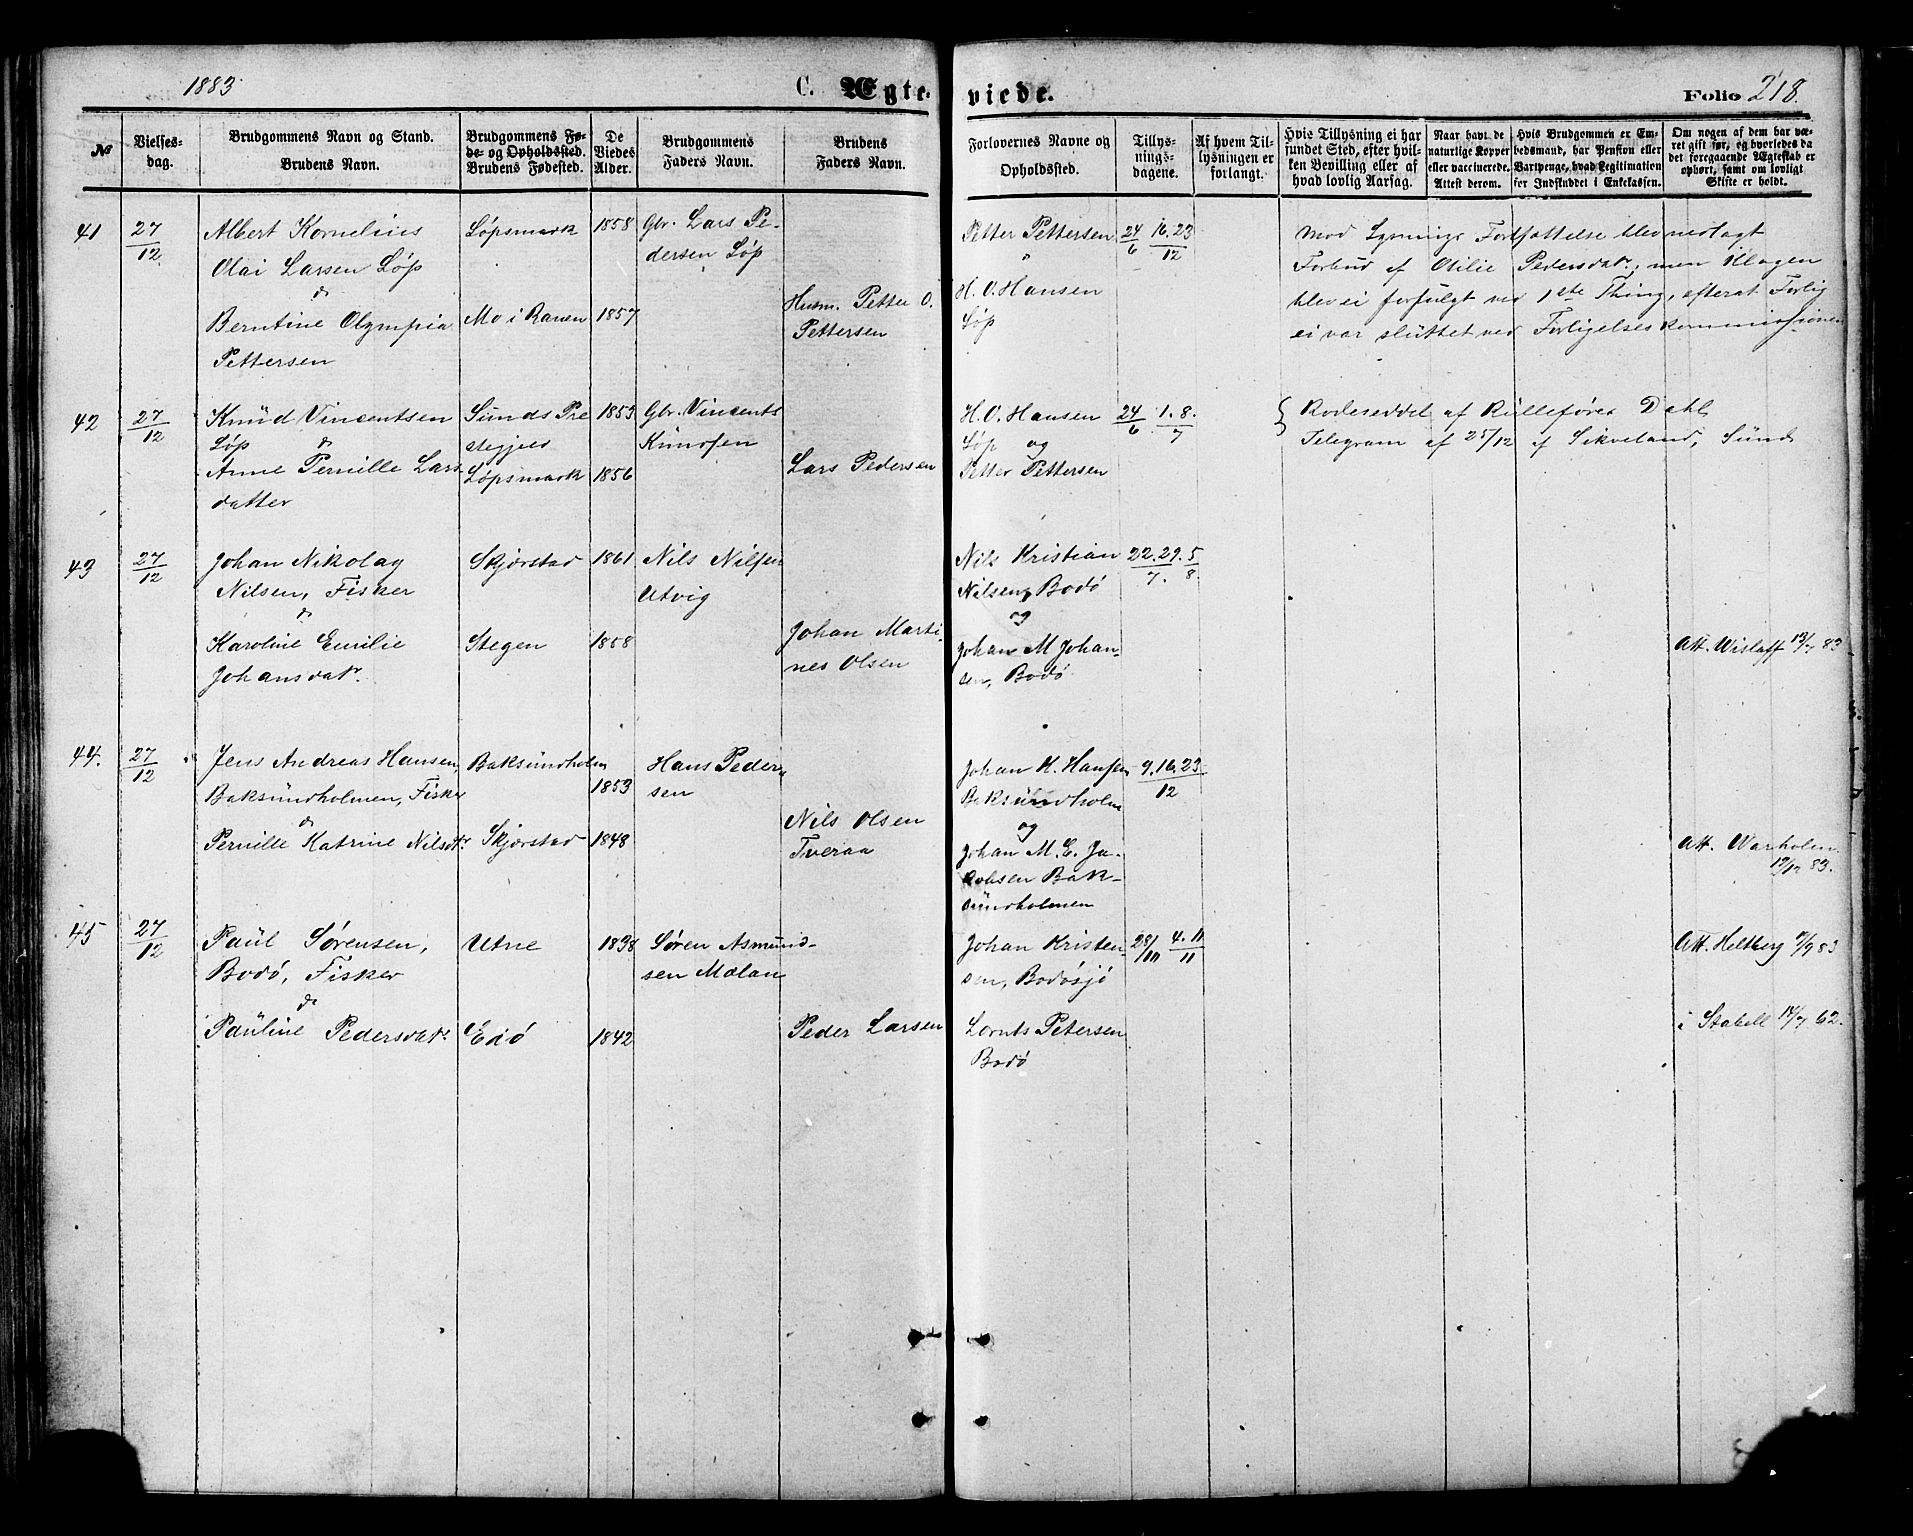 1883
C. Ægte-
viede.
Folio 218.
No
Vielses-
dag.
Brudgommens Navn og Stand.
Brudens Navn.
Brudgommens Fø-
de- og Opholdssted.
Brudens Fødested.
De
Viedes
Alder.
Brudgommens
Faders Navn.
Brudens
Faders Navn.
Forlovernes Navne og
Opholdssted.
Tillys-
nings-
dagene.
Af hvem Til-
lysningen er
forlangt.
Hvis Tillysning ei har
fundet Sted, efter hvil-
ken Bevilling eller af
hvad lovlig Aarsag.
Naar havt de
naturlige Kopper
eller vaccinerede.
Attest derom.
Hvis Brudgommen er Em-
bedsmand, har Pension eller
Vartpenge, hvad Legitimation
for Indskuddet i Enkekassen.
Om nogen af dem har væ-
ret gift før, og hvorledes da
det foregaaende Ægteskab er
ophørt, samt om lovligt
Skifte er holdt.
41 27/12 Albert Kornelius Løpsmark 1858 Gbr. Lars Pe- Petter Pettersen 24/6 16.23/12 Mod Lysnings Fortsættelse blev nedlagt
Olai Larsen Løp dersen Løp " Forbud af Otilie Pedersdatr, men Klagen
& H. O. Hansen blev ei forfulgt ved 1ste Thing, efterat Forlig
Berntine Olympia Mo i Ranen 1857 Husm. Petter O. Løp ei var sluttet ved Forligelseskommissionen
Pettersen Pettersen
42 27/12 Knud Vincentsen Sunds Pre 1853 Gbr. Vincents H. O. Hansen 24/6 1.8./7 Rodeseddel af Rullefører Dahl
Løp & stegjeld Knudsen Løp og Telegram af 25/12 af Sikveland, Sund
Anne Pernille Lars Løpsmark 1856 Lars Pedersen Petter Pettersen
datter
43 27/12 Johan Nikolay Skjerstad 1861 Nils Nilsen Nils Kristian 22.29./7. 5/8.
Nilsen, Fisker Utvig Nilsen, Bodø
& og
Karoline Emilie Stegen 1858 Johan Marti- Johan M Johan- Att. Wisløff 13/7 83
Johansdatr. nes Olsen sen, Bodø
44. 27/12 Jens Andreas Hansen, Baksundholm Hans Peder Johan H. Hansen 9.16.23/12
Baksundholmen, Fisker 1853 sen Baksundholm
& Nils Olsen og
Pernille Katrine Nilsdtr Skjerstad 1848 Tveraa Johan M. E. Ja- Att. Warholm
kobsen Bak- 83.
sundholmen
45 27/12 Paul Sørensen, Utne 1838 Søren Asmund- Johan Kristen- 28/10 4.11/11 Att. Heltberg 83
Bodø, Fisker sen Mælan sen, Bodøsjø
&
Pauline Pedersdatr. Edø 1842 Peder Larsen Lornts Petersen i Stabell 62.
Bodø